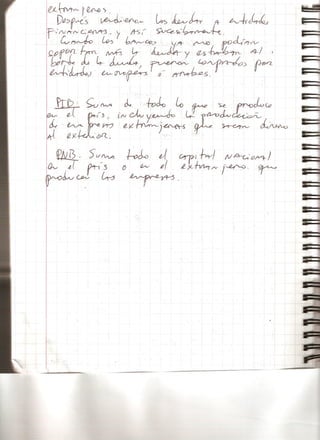 extranjenos.
Despues vendieron las deudas a entidades
Financieras, y así sucesivamente.
Cuando los bancos ya no podian
soportar más la deuda y estaban al
borde de la deuda, fueron comprados por
entidades europeas ó arabes.
PIB: Suma de todo lo que se produce
en el pais, incluyendo la producción
de empresas extranjeras que sacan dinero
al exterior.
PNB. Suma todo el capital nacional
en el pais o en el extranjero que
producen las empresas.